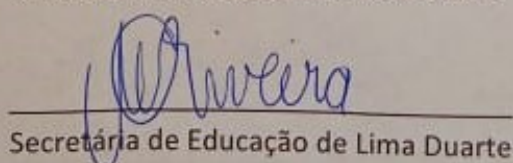 Oliveira
Secretária de Educação de Lima Duarte